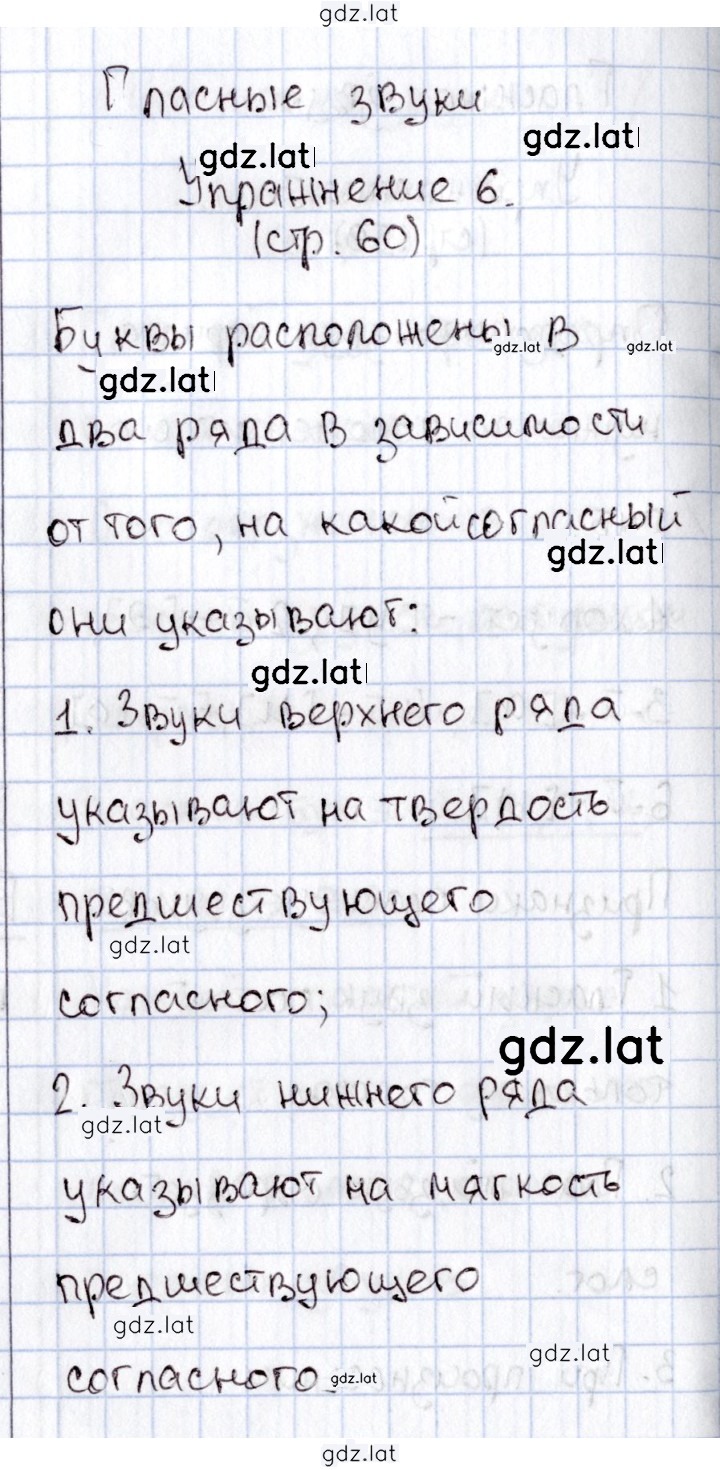 gdz.lat
Гласные звуки
gdz.lat
gdz.lat
Упражнение 6.
(стр. 60)
Буквы расположены в
gdz.lat
gdz.lat
gdz.lat
два ряда в зависимости
от того, на какой согласный
gdz.lat
они указывают:
gdz.lat
1. Звуки верхнего ряда
указывают на твердость
предшествующего
gdz.lat
согласного;
gdz.lat
2. Звуки нижнего ряда
gdz.lat
указывают на мягкость
предшествующего
gdz.lat
gdz.lat
согласного.
gdz.lat
gdz.lat